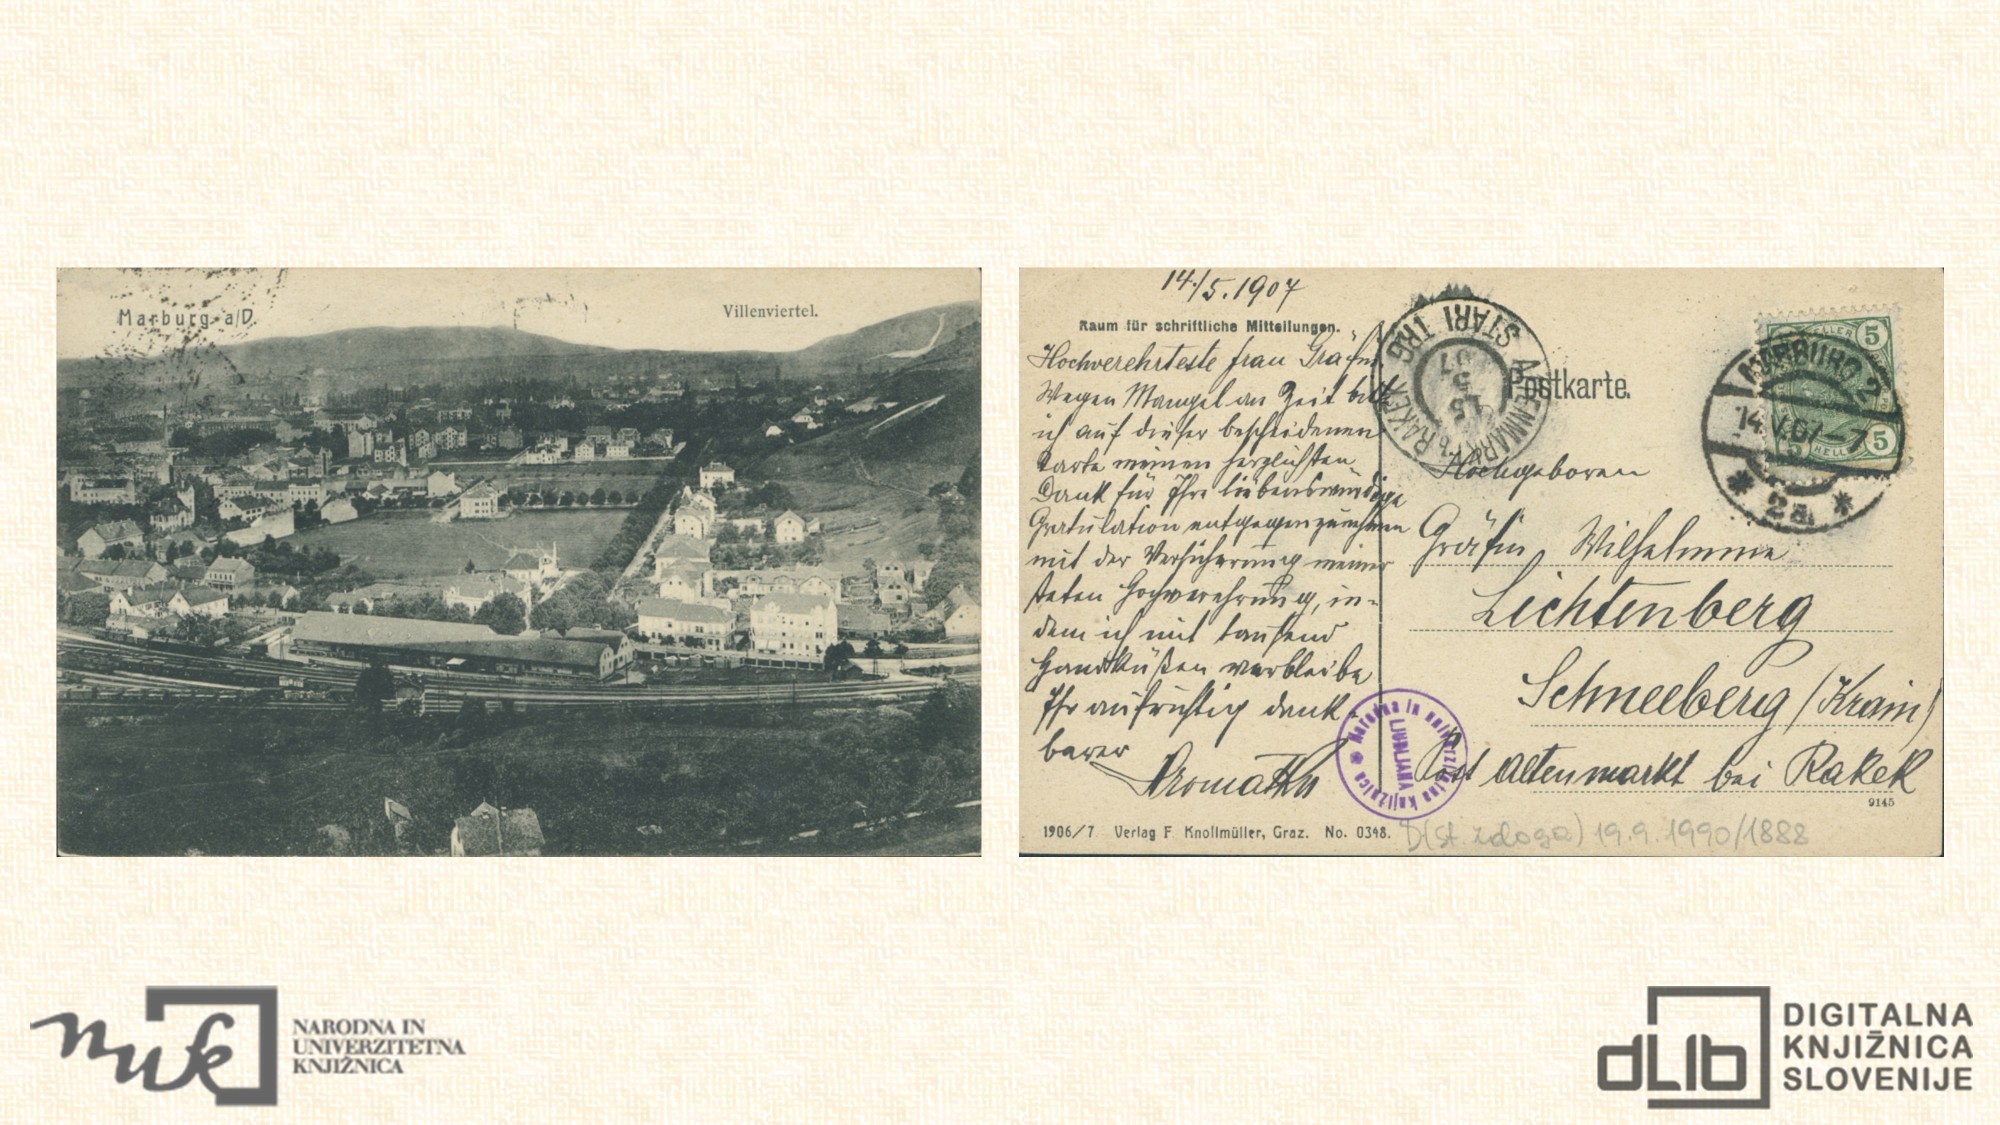 Marburg a/D.
Villenviertel.
14./5.1907
Raum für schriftliche Mitteilungen.
Hochverehrteste Frau Gräfin,
Wegen Mangel an Zeit bitte
ich auf dieser bescheidenen
Karte meinen herzlichsten
Dank für Ihre liebenswürdige
Gratulation entgegenzunehmen
mit der Versicherung meiner
steten Hochverehrung, in-
dem ich mit tausend
Handküßen verbleibe
Ihr aufrichtig dank-
barer
1906/7 Verlag F. Knollmüller, Graz. No. 0348.
ALTENMARKT b. RAKEK
STARI TRG
15 5 07
Postkarte.
5 HELLER 5
MARBURG 2
14.V.07-7
2a
Hochgeboren
Gräfin Wilhelmine
Lichtenberg
Schneeberg (Krain)
Post Altenmarkt bei Rakek
9145
Narodna in univerzitetna knjižnica
LJUBLJANA
D(st. zaloga) 19.9.1990/1888
nuk
NARODNA IN
UNIVERZITETNA
KNJIŽNICA
dLib
DIGITALNA
KNJIŽNICA
SLOVENIJE